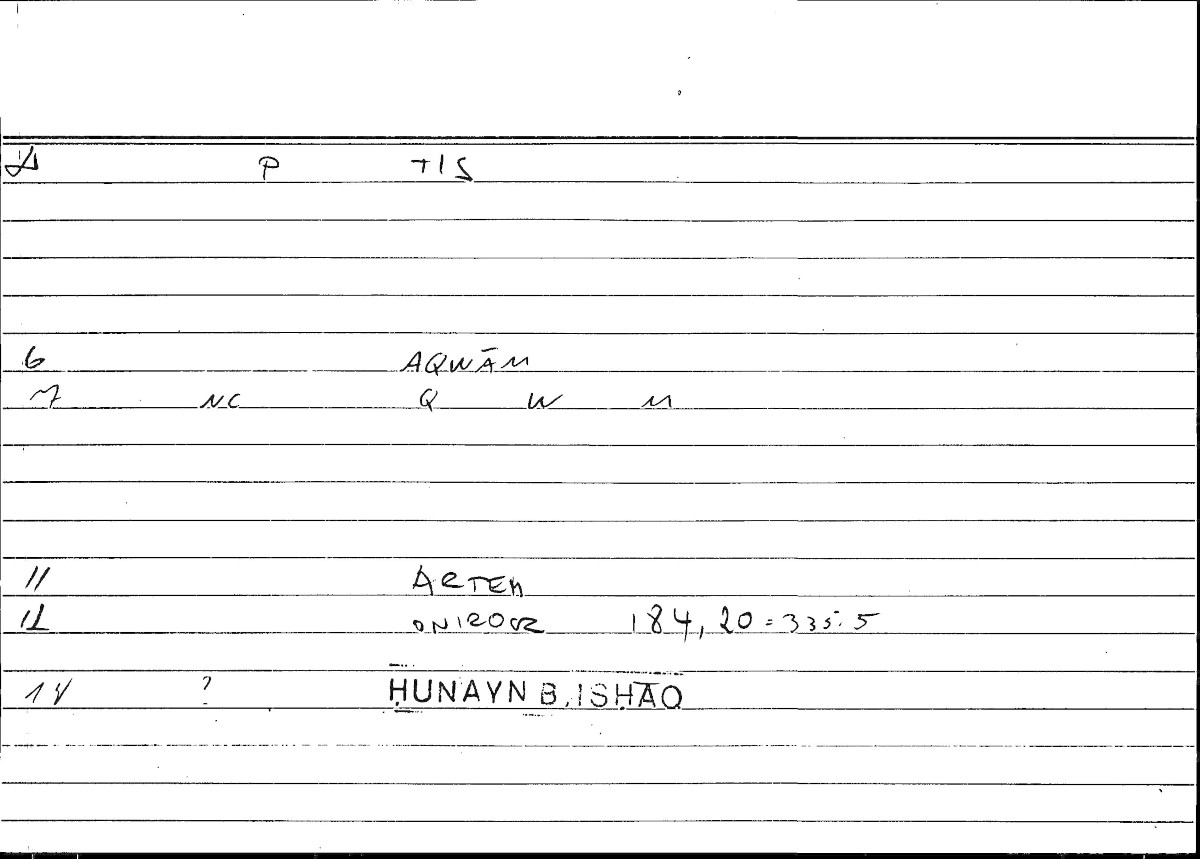 P TIS
6 AQWĀM
7 NC Q W M
11 ARTEM
12 ONIROCR 184, 20 = 335.5
14 ? ḤUNAYN B. ISḤĀQ